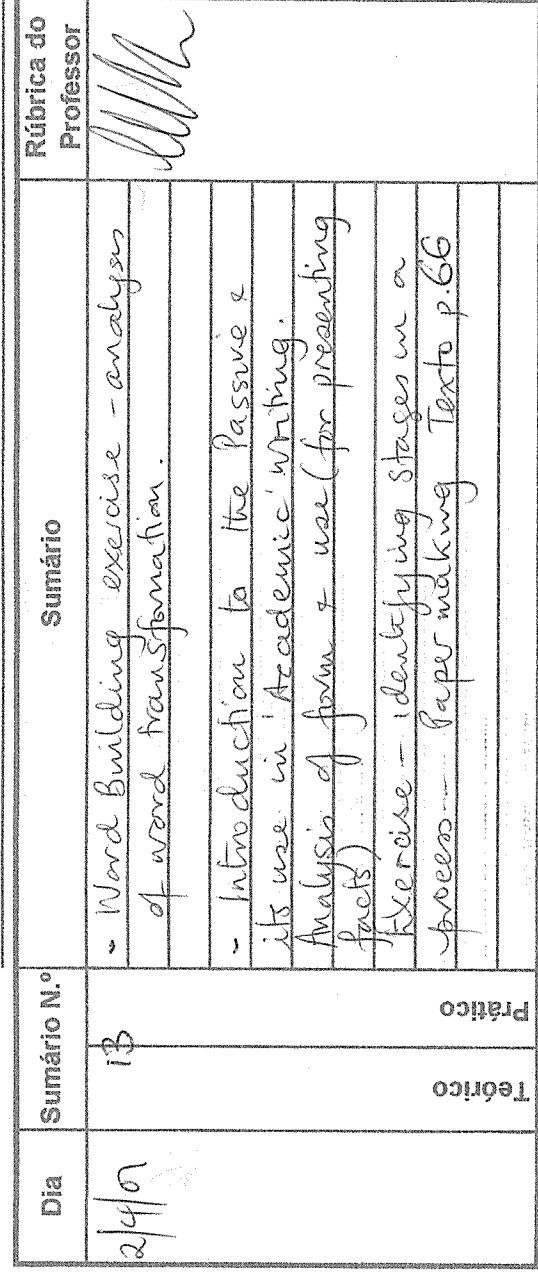 Dia
Sumário N.º
Sumário
Rúbrica do
Professor
2/4/01
13
Teórico
Prático
- Word Building exercise - analysis
of word transformation.
- Introduction to the Passive &
its use in 'Academic' writing.
Analysis of form & use (for presenting
facts)
Exercise - identifying stages in a
process - Paper making Texto p.66